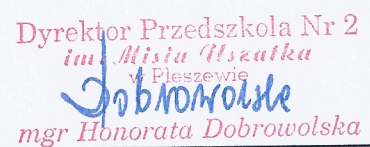 Dyrektor Przedszkola Nr 2
im. Misia Uszatka
w Pleszewie
Dobrowolska
mgr Honorata Dobrowolska